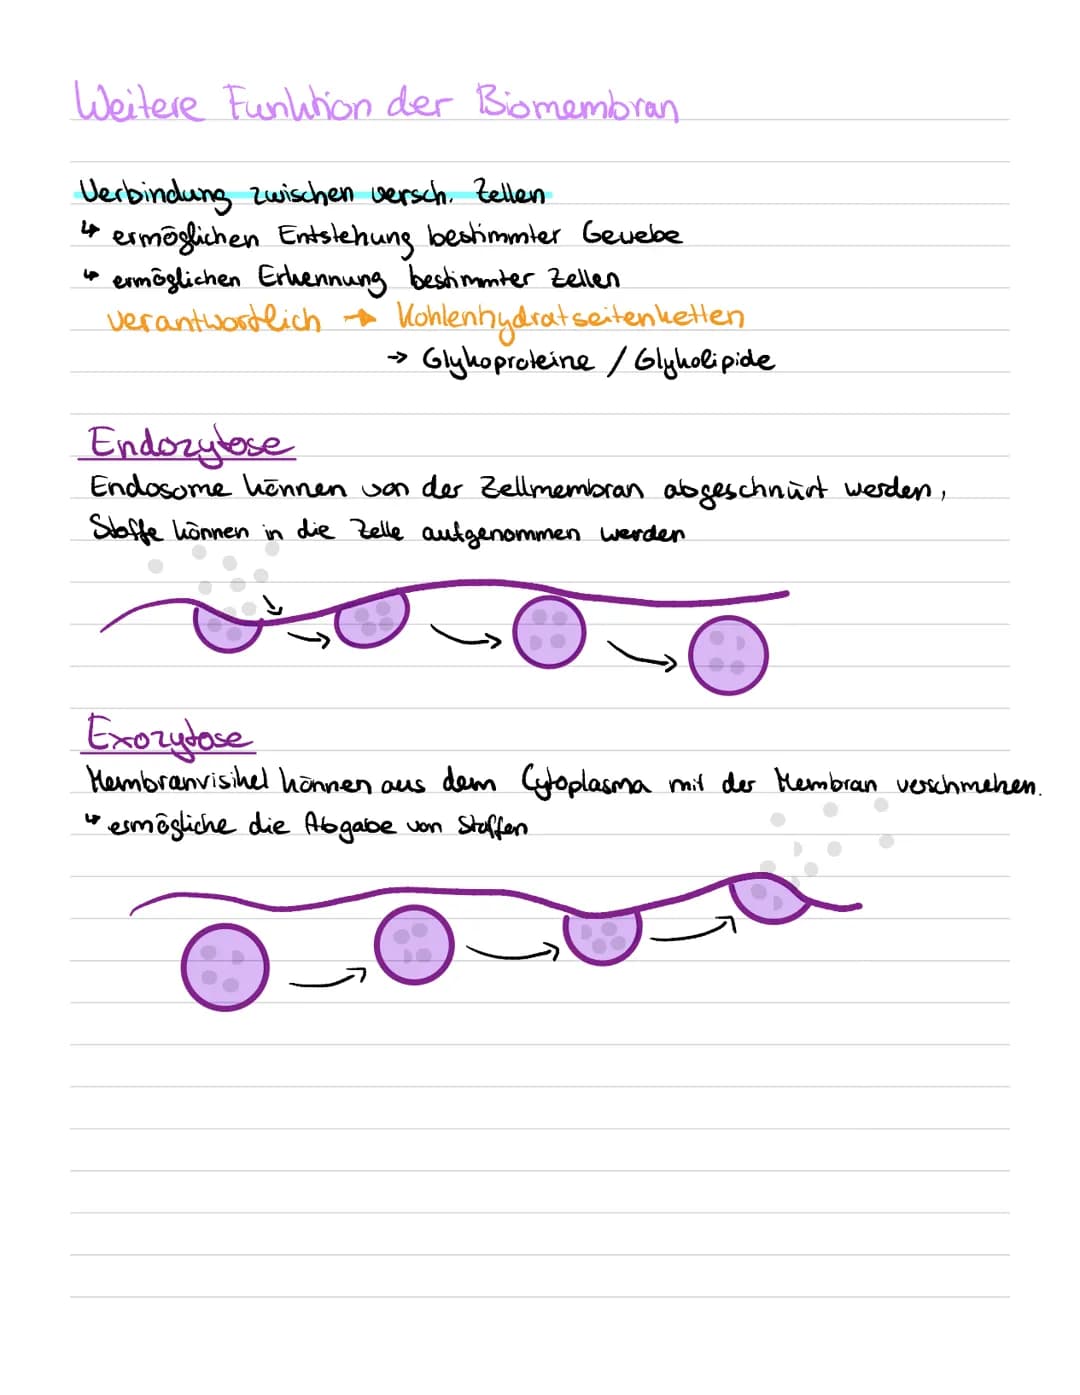 Weitere Funktion der Biomembran
Verbindung zwischen versch. Zellen
↳ ermöglichen Entstehung bestimmter Gewebe
↳ ermöglichen Erkennung bestimmter Zellen
verantwortlich → Kohlenhydratseitenketten
→ Glykoproteine / Glykolipide
Endozytose
Endosome können von der Zellmembran abgeschnürt werden,
Stoffe können in die Zelle aufgenommen werden
Exozytose
Membranvisikel können aus dem Cytoplasma mit der Membran verschmelzen.
↳ ermögliche die Abgabe von Stoffen